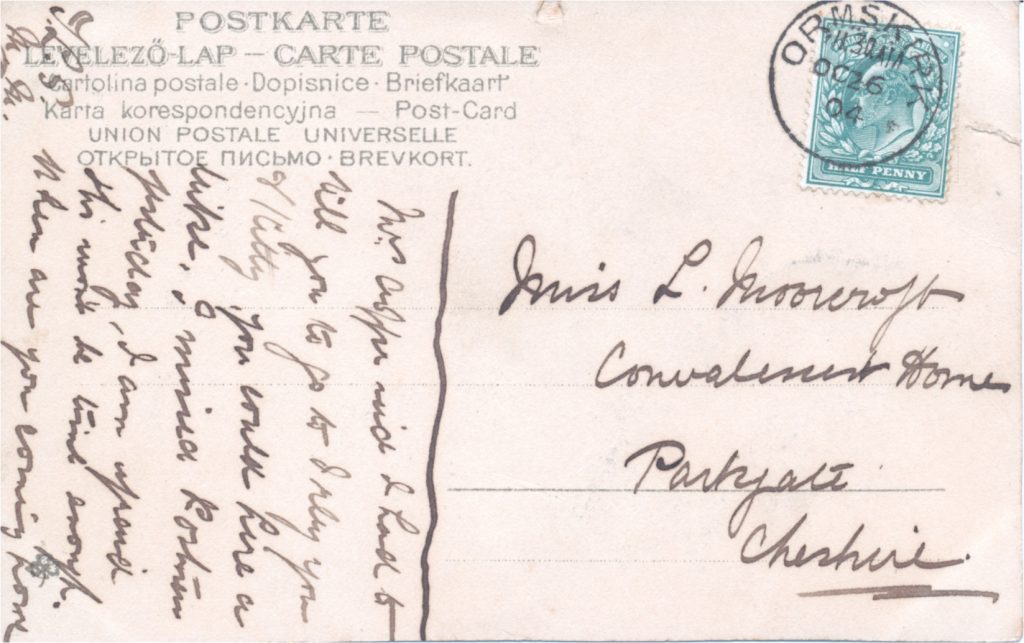 POSTKARTE
LEVELEZŐ-LAP — CARTE POSTALE
Cartolina postale · Dopisnice · Briefkaart
Karta korespondencyjna — Post-Card
UNION POSTALE UNIVERSELLE
ОТКРЫТОЕ ПИСЬМО · BREVKORT.
ORMSKIRK
11.30AM
OC 26
04
HALF PENNY
Miss L. Moorcroft
Convalescent Home
Parkgate
Cheshire.
Mrs said I had to
tell you to go to you
& Kitty you would here a
mise, I missed
yesterday, I am
this wont be time enough.
When are you coming home